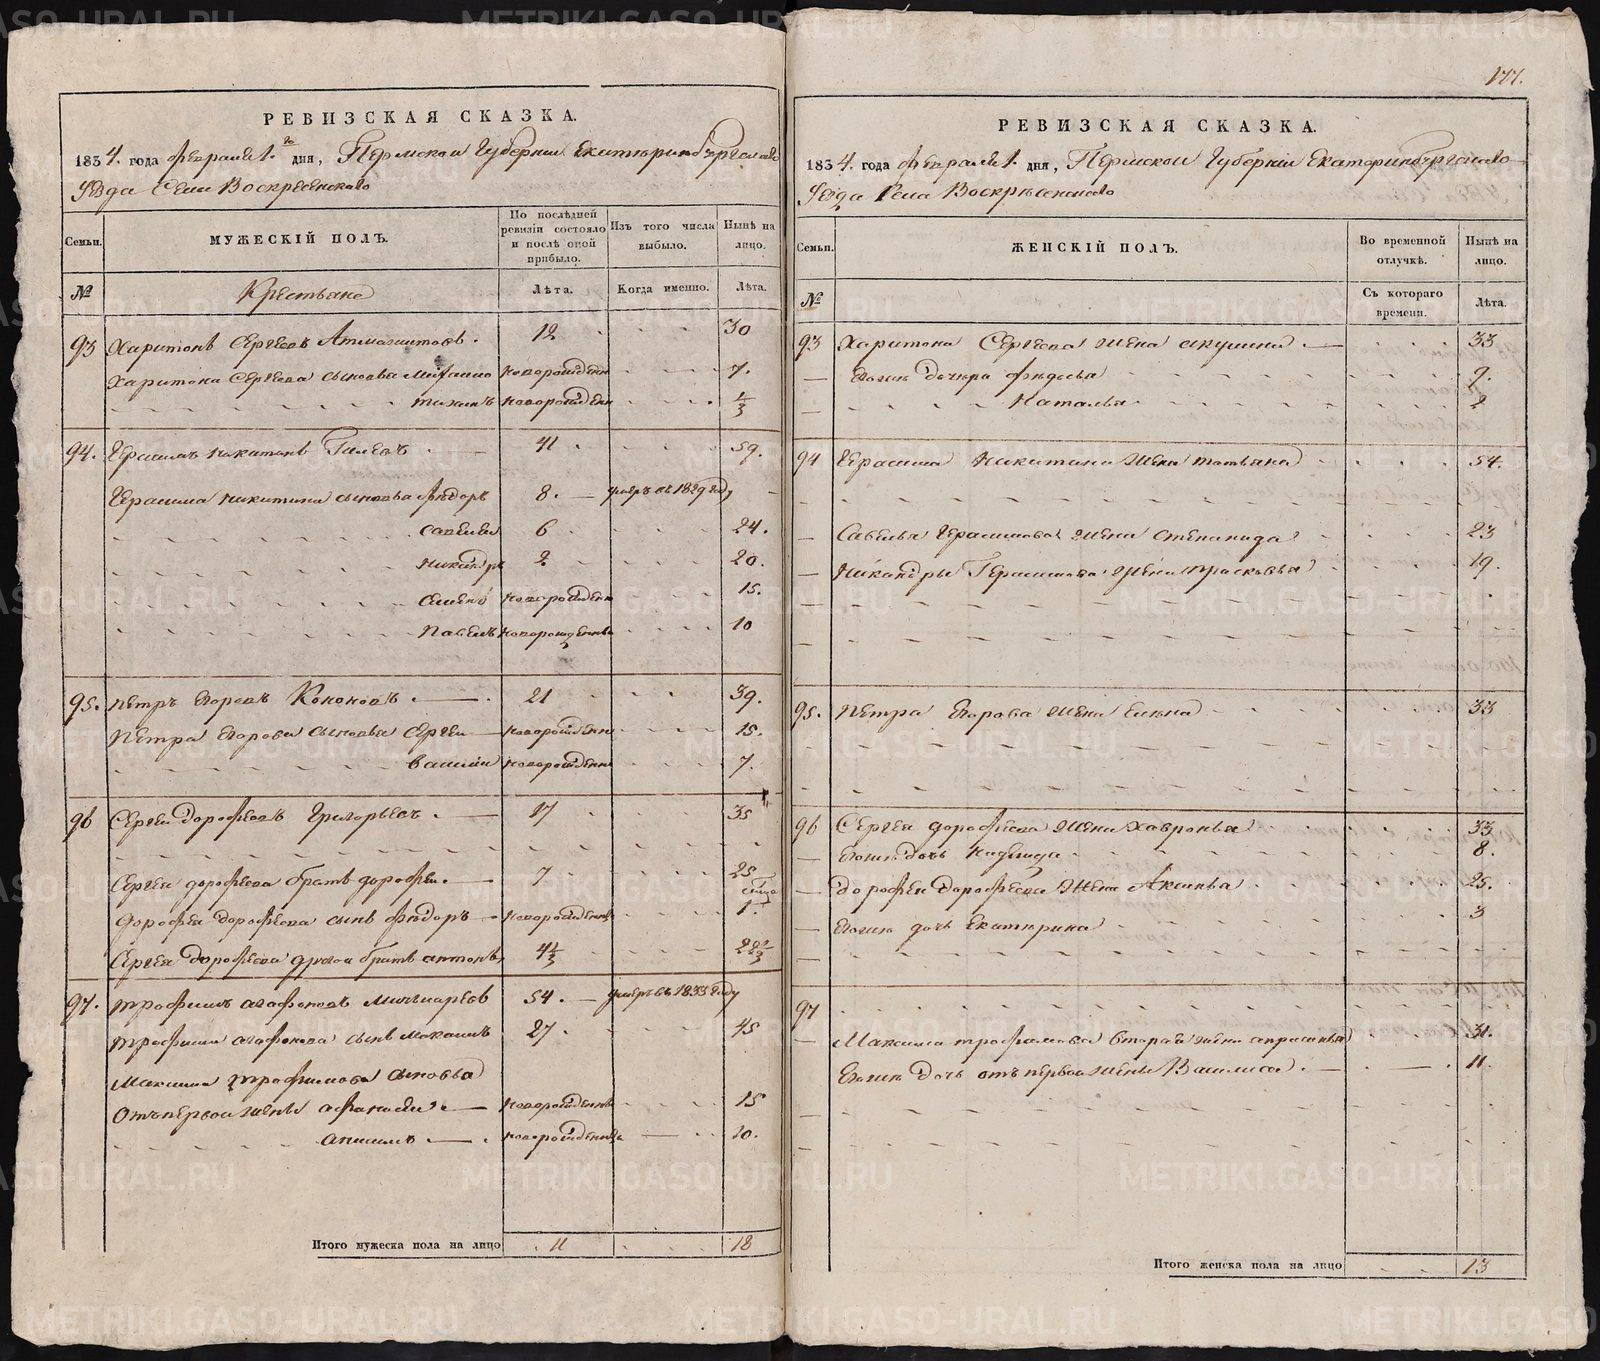 177.
РЕВИЗСКАЯ СКАЗКА.
1834. года февраля 1. дня, Пермской Губернии Екатеринбургскаго
Уѣзда Села Воскресенскаго
Семьи.
МУЖЕСКІЙ ПОЛЪ.
По послѣдней ревизіи состояло и послѣ оной прибыло.
Изъ того числа выбыло.
Нынѣ на лицо.
№
Крестьяне
Лѣта.
Когда именно.
Лѣта.
93 Харитонъ Сергѣевъ 12 30
Харитона Сергѣева сыновья Михайло новорожденн 7.
Тихонъ новорожденн 1/3
94. Герасимъ Никитинъ Галевъ 41 59.
Герасима Никитина сыновья Ѳедоръ 8. умеръ въ 1829 году
Савелей 6 24.
Никандръ 2 20.
Семенъ новорожденн 15.
Павелъ новорожденнъ 10
95. Петръ Егоровъ Кононовъ 21 39.
Петра Егорова сыновья Сергей новорожденн 15.
Василей новорожденн 7.
96 Сергей Дорофеевъ Григорьевъ 17 35
Сергея Дорофеева братъ Дорофей 7 25
Дорофея Дорофеева сынъ Ѳедоръ новорожденнъ 1.
Сергея Дорофеева другой братъ Антонъ 4 1/3 22 2/3
97. Трофимъ Агафоновъ 54. умеръ въ 1833 году
Трофима Агафонова сынъ Максимъ 27. 45
Максима Трофимова сыновья
отъ первой жены Афанасей новорожденнъ 15
Анисимъ новорожденнъ 10.
Итого мужеска пола на лицо 11 18
РЕВИЗСКАЯ СКАЗКА.
1834. года февраля 1. дня, Пермской Губерніи Екатеринбургскаго
Уѣзда Села Воскресенскаго
Семьи.
ЖЕНСКІЙ ПОЛЪ.
Во временной отлучкѣ.
Нынѣ на лицо.
№
Съ котораго времени.
Лѣта.
93 Харитона Сергѣева жена Акулина 33
Ево же дочери Федосья 9.
Наталья 2
94 Герасима Никитина жена Татьяна 54.
Савелья Герасимова жена Степанида 23
Никандры Герасимова жена Прасковья 19.
95. Петра Егорова жена Елена 33
96 Сергея Дорофеева жена Хавронья 33
Его же дочь Надежда 8.
Дорофея Дорофеева жена Аксинья 25.
Его же дочь Екатерина 3
97
Максима Трофимова вторая жена Апросинья 31.
Его же дочь отъ первой жены Василиса 11.
Итого женска пола на лицо 13
METRIKI.GASO-URAL.RU